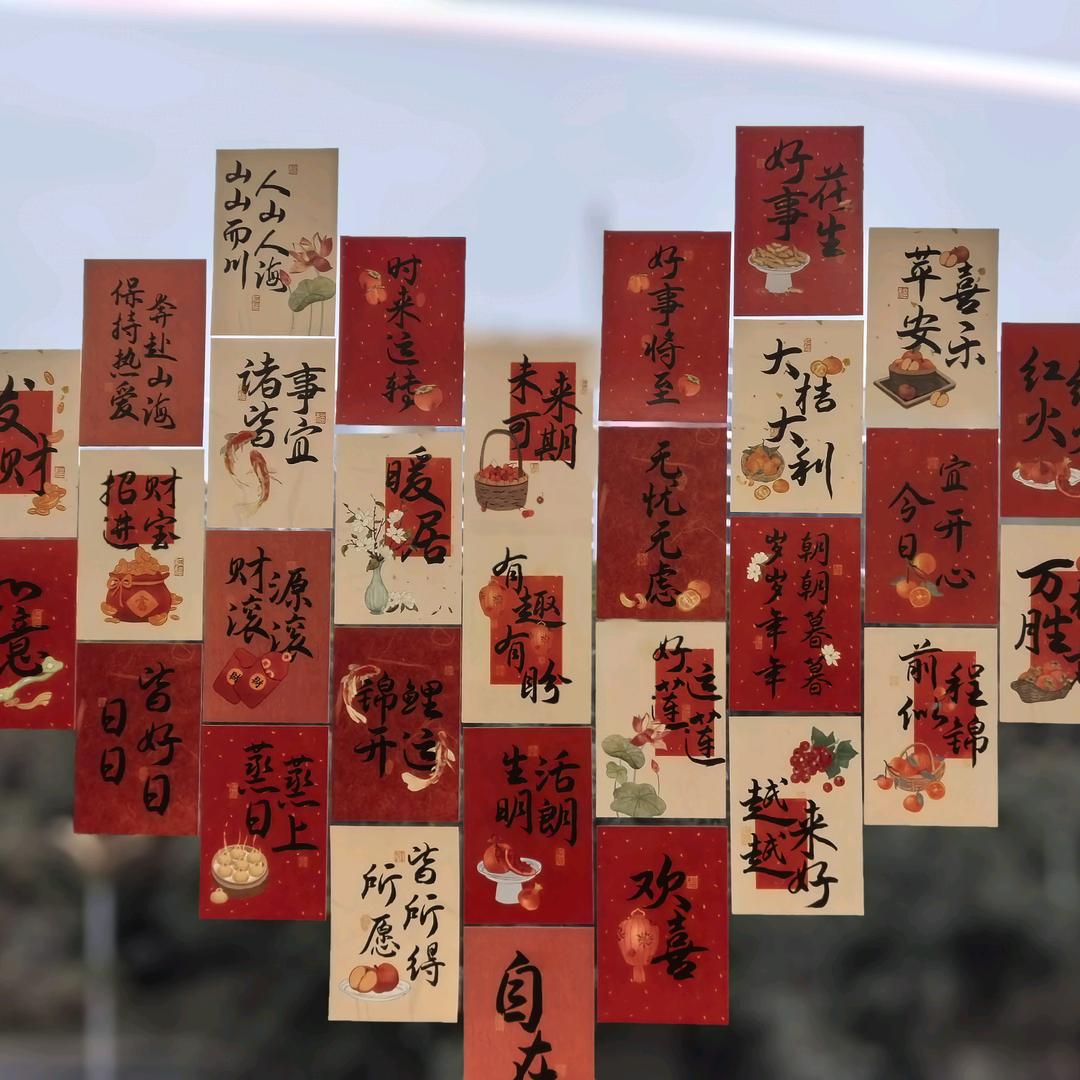 发财
意
奔赴山海
保持热爱
招财
进宝
皆好日
日日
山山而川
人山人海
诸事
皆宜
财源
滚滚
蒸蒸
日上
时来运转
暖居
锦鲤
开运
所愿
皆所得
未来
可期
有趣
有盼
生活
明朗
自在
好事将至
无忧无虑
好运
莲莲
欢喜
好事
花生
大桔
大利
朝朝暮暮
岁岁年年
越来
越好
苹安
喜乐
今日
宜开心
前程
似锦
红
火
万
胜